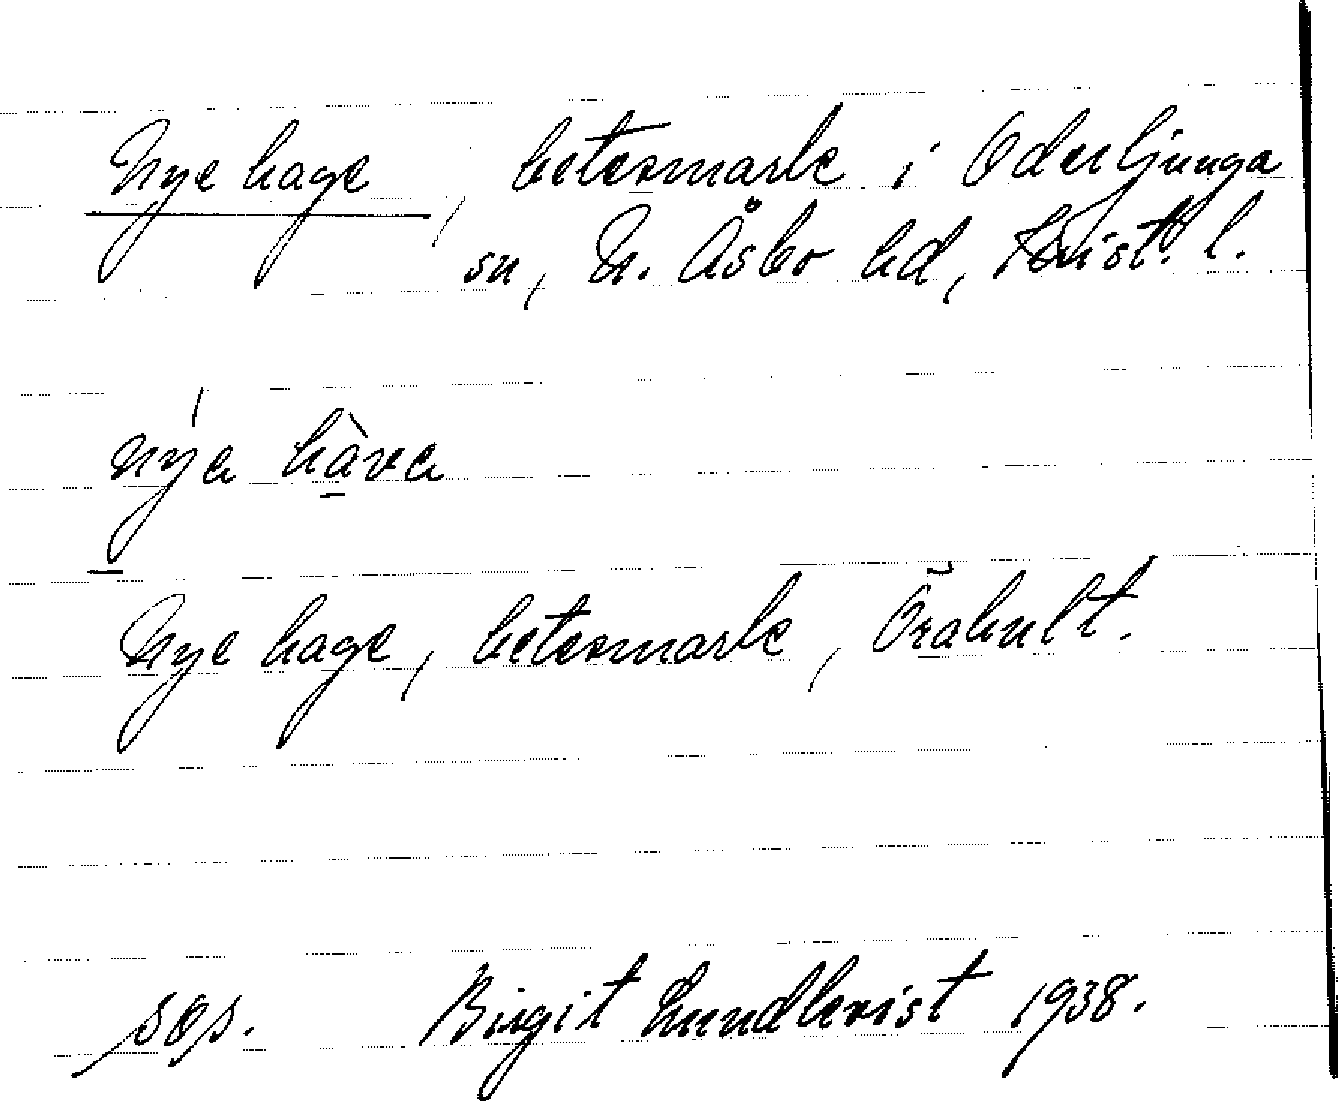 Nye hage, betesmark i Oderljunga
sn, N. Åsbo hd, Krist. l.
nýa hàva
Nye hage, betesmark, Örahult.
Birgit Lundkvist 1938.